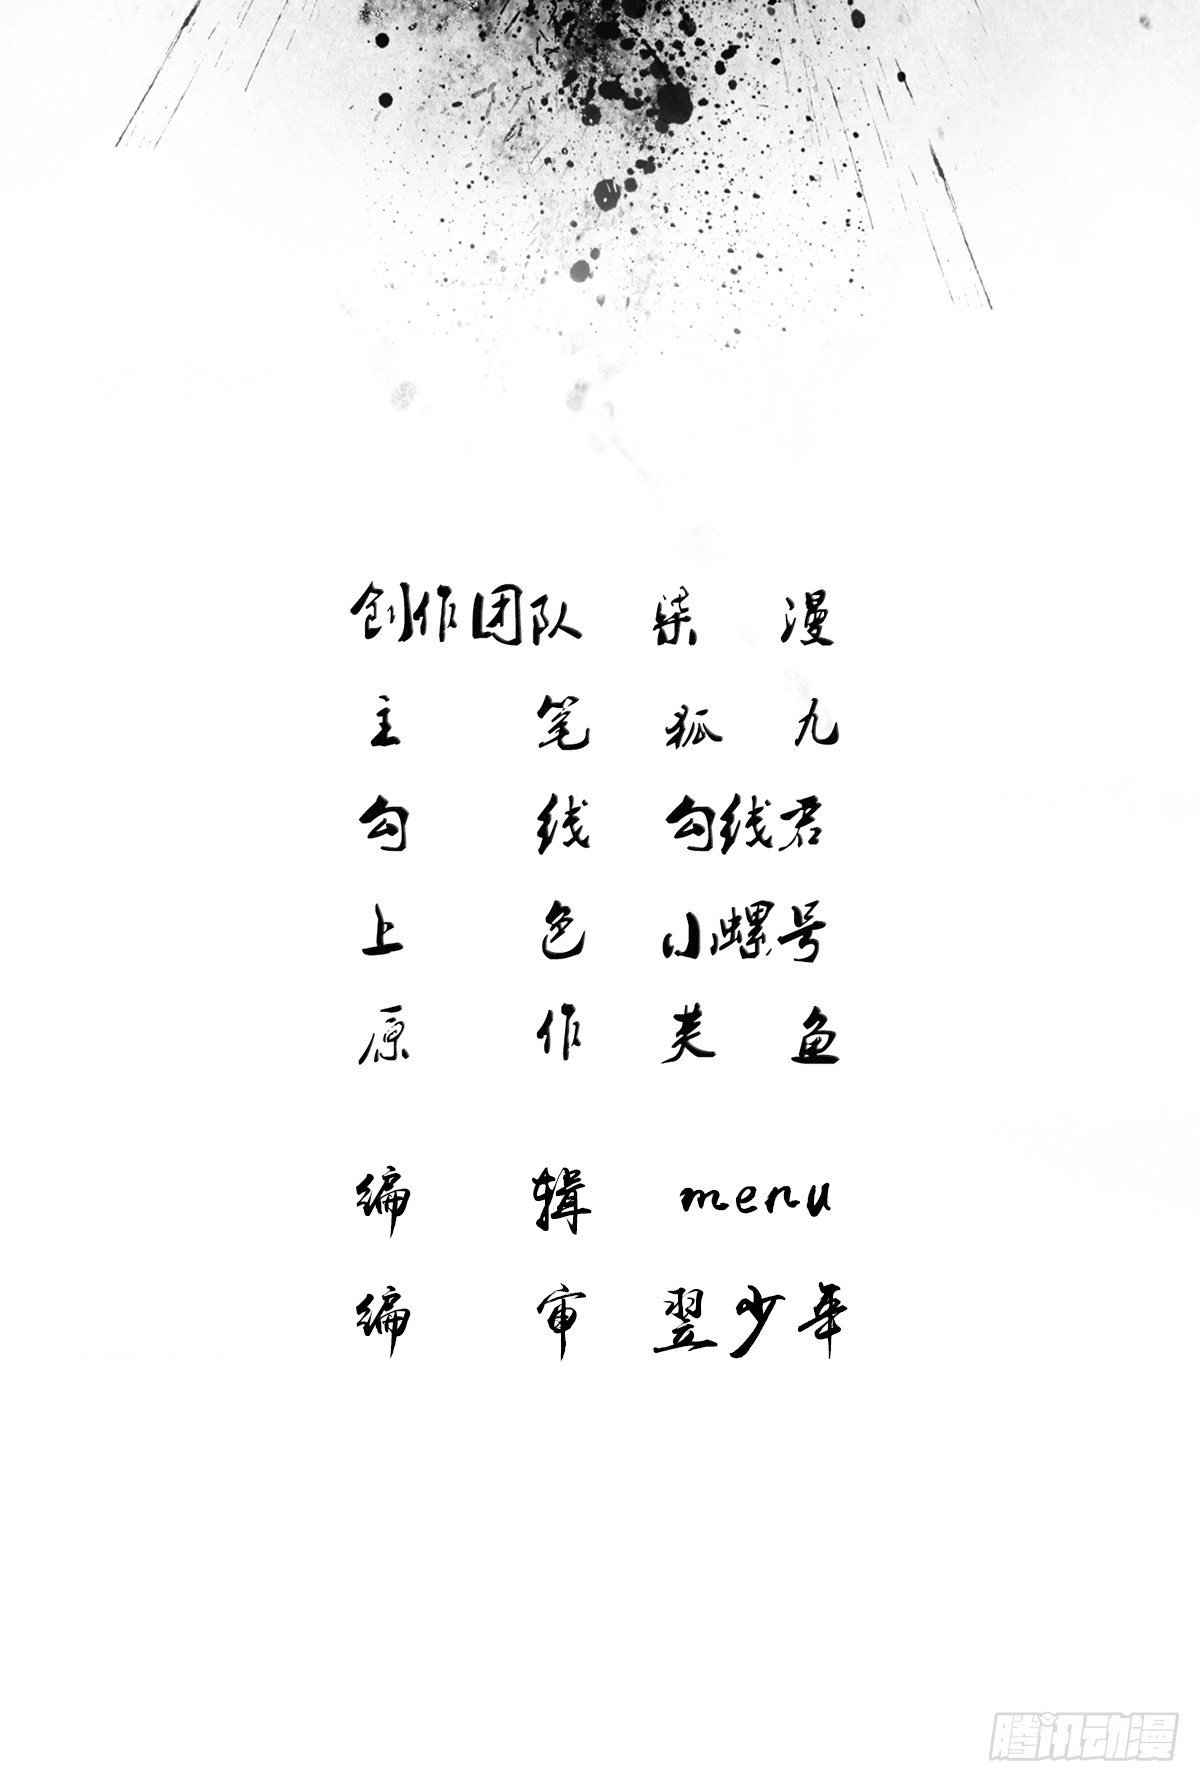 创作团队 柒 漫
主 笔 狐 九
勾 线 勾线君
上 色 小螺号
原 作 芙 鱼
编 辑 menu
编 审 翌少年
腾讯动漫